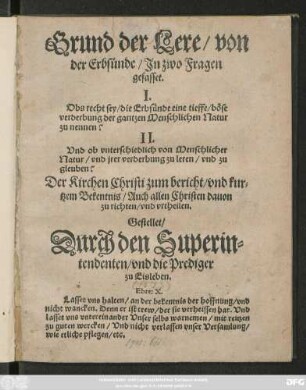 Grund der Lere/ von
der Erbsünde/ In zwo Fragen
gefasset.
I.
Obs recht sey/ die Erbsünde eine tieffe/ böse
verderbung der gantzen Menschlichen Natur
zu nennen?
II.
Vnd ob vnterschiedlich von Menschlicher
Natur/ vnd jrer verderbung zu leren/ vnd zu
gleuben?
Der Kirchen Christi zum bericht/ vnd kur-
tzem Bekentnis/ Auch allen Christen dauon
zu richten/ vnd vrtheilen.
Gestellet/
Durch den Superin-
tendenten/ vnd die Prediger
zu Eisleben.
Ebre: X.
Lasset vns halten/ an der bekentnis der hoffnung/ vnd
nicht wancken. Denn er ist trew/ der sie verheissen hat. Vnd
lasset vns vntereinander vnser selbs warnemen/ mit reitzen
zu guten wercken/ Vnd nicht verlassen vnser Versamlung/
wie etliche pflegen/ etc.